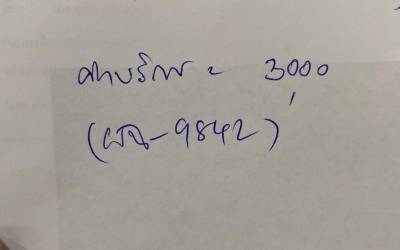 ค่าบริการ = 3,000
(ผฉ-9842)